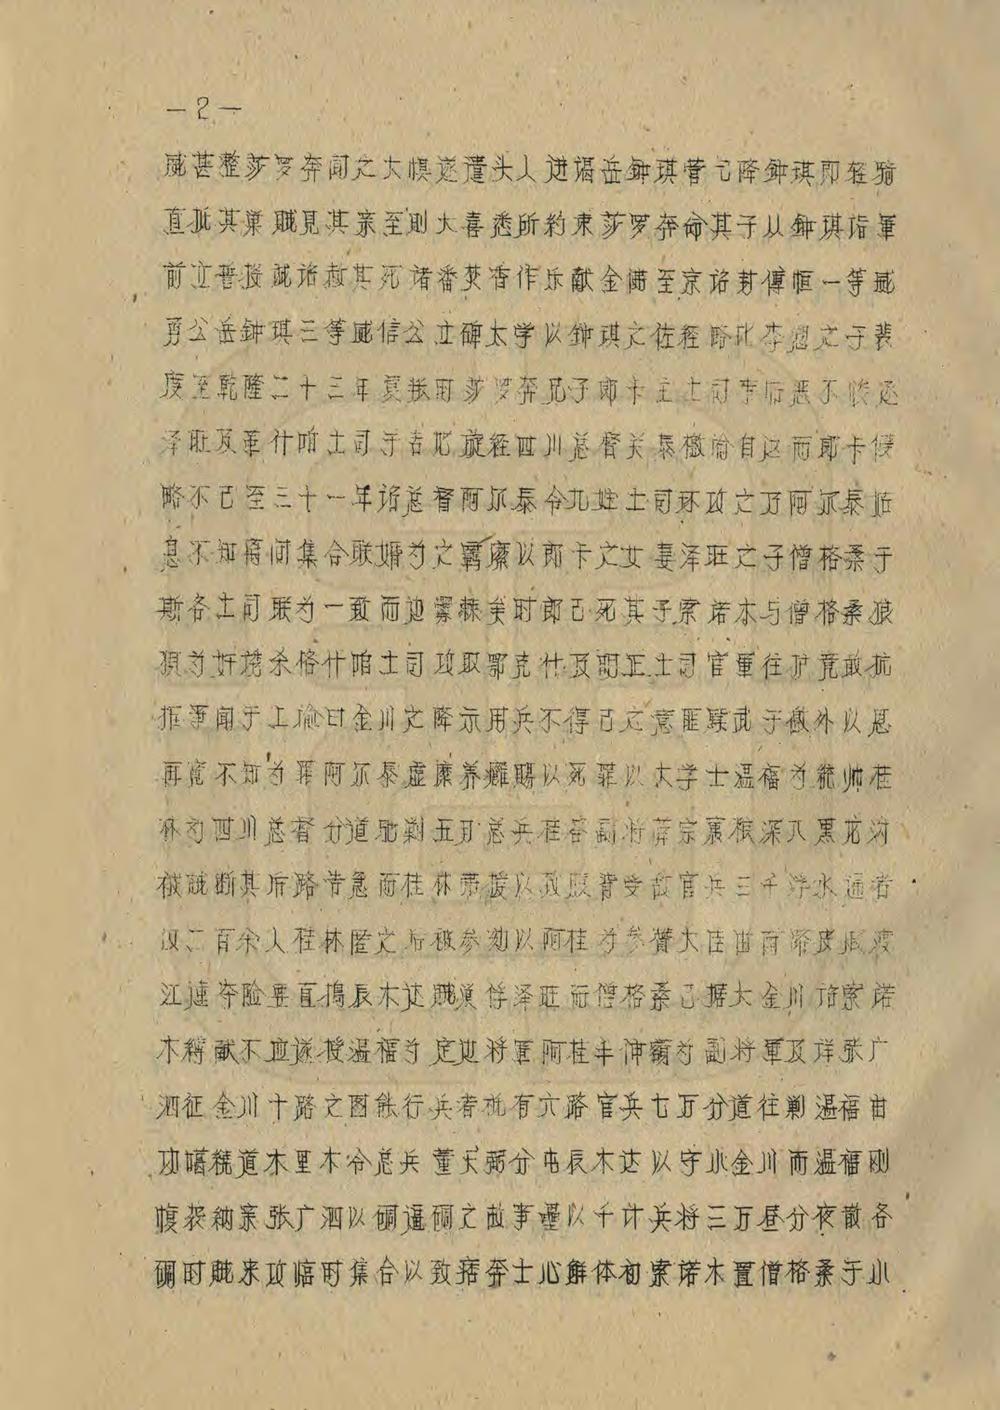 —2—
威甚整莎罗奔闻之大惧遂遣头人进谒岳钟琪营乞降钟琪即轻骑
直抵其巢贼见其亲至则大喜悉听约束莎罗奔命其子从钟琪诣军
前立誓授贼诏赦其死诸番焚香作乐献金佛至京诏封傅恒一等威
勇公岳钟琪三等威信公立碑太学以钟琪之佐经略比李愬之于裴
度至乾隆二十三年夏 时莎罗奔兄子郎卡主土司事后恶不悛逐
泽旺及革什咱土司于吉地旋经四川总督关泰檄谕自返而郎卡侵
略不已至三十一年诏总督阿尔泰令九姓土司环攻之乃阿尔泰姑
息不知得间集合联姻为之羁縻以郎卡之女妻泽旺之子僧格桑于
斯各土司联为一致而边衅棘矣时郎已死其子索诺木与僧格桑狼
狈为奸 杀格什咱土司攻取鄂克什及明正土司官军往护竟敢抗
拒事闻于上谕曰金川之降示用兵不得已之意匪黩武于徼外以恩
再 不知为罪阿尔泰虚縻养痈赐以死罪以大学士温福为统帅桂
林为四川总督分道驰剿五 总兵桂 副将薛宗 狼深入黑龙沟
被贼断其后路告急而桂林 援以致腹背受敌官兵三千浮水遁者
仅二百余人桂林匿之后被参劾以阿桂为参赞大臣由南 皮 渡
江连夺险要直捣辰木达贼巢俘泽旺而僧格桑已据大金川 索诺
木 献不应遂授温福为定边将军阿桂丰伸额为副将军及详张广
泗征金川十路之图 行兵者 有六路官兵七万分道往剿温福由
功噶 道木里木令总兵董天弼分屯辰木达以守小金川而温福刚
愎 亲张广泗以碉逼碉之故事 以千计兵将三万昼分夜散各
碉时贼来攻临时集合以致痞奔士心解体初索诺木置僧格桑于小